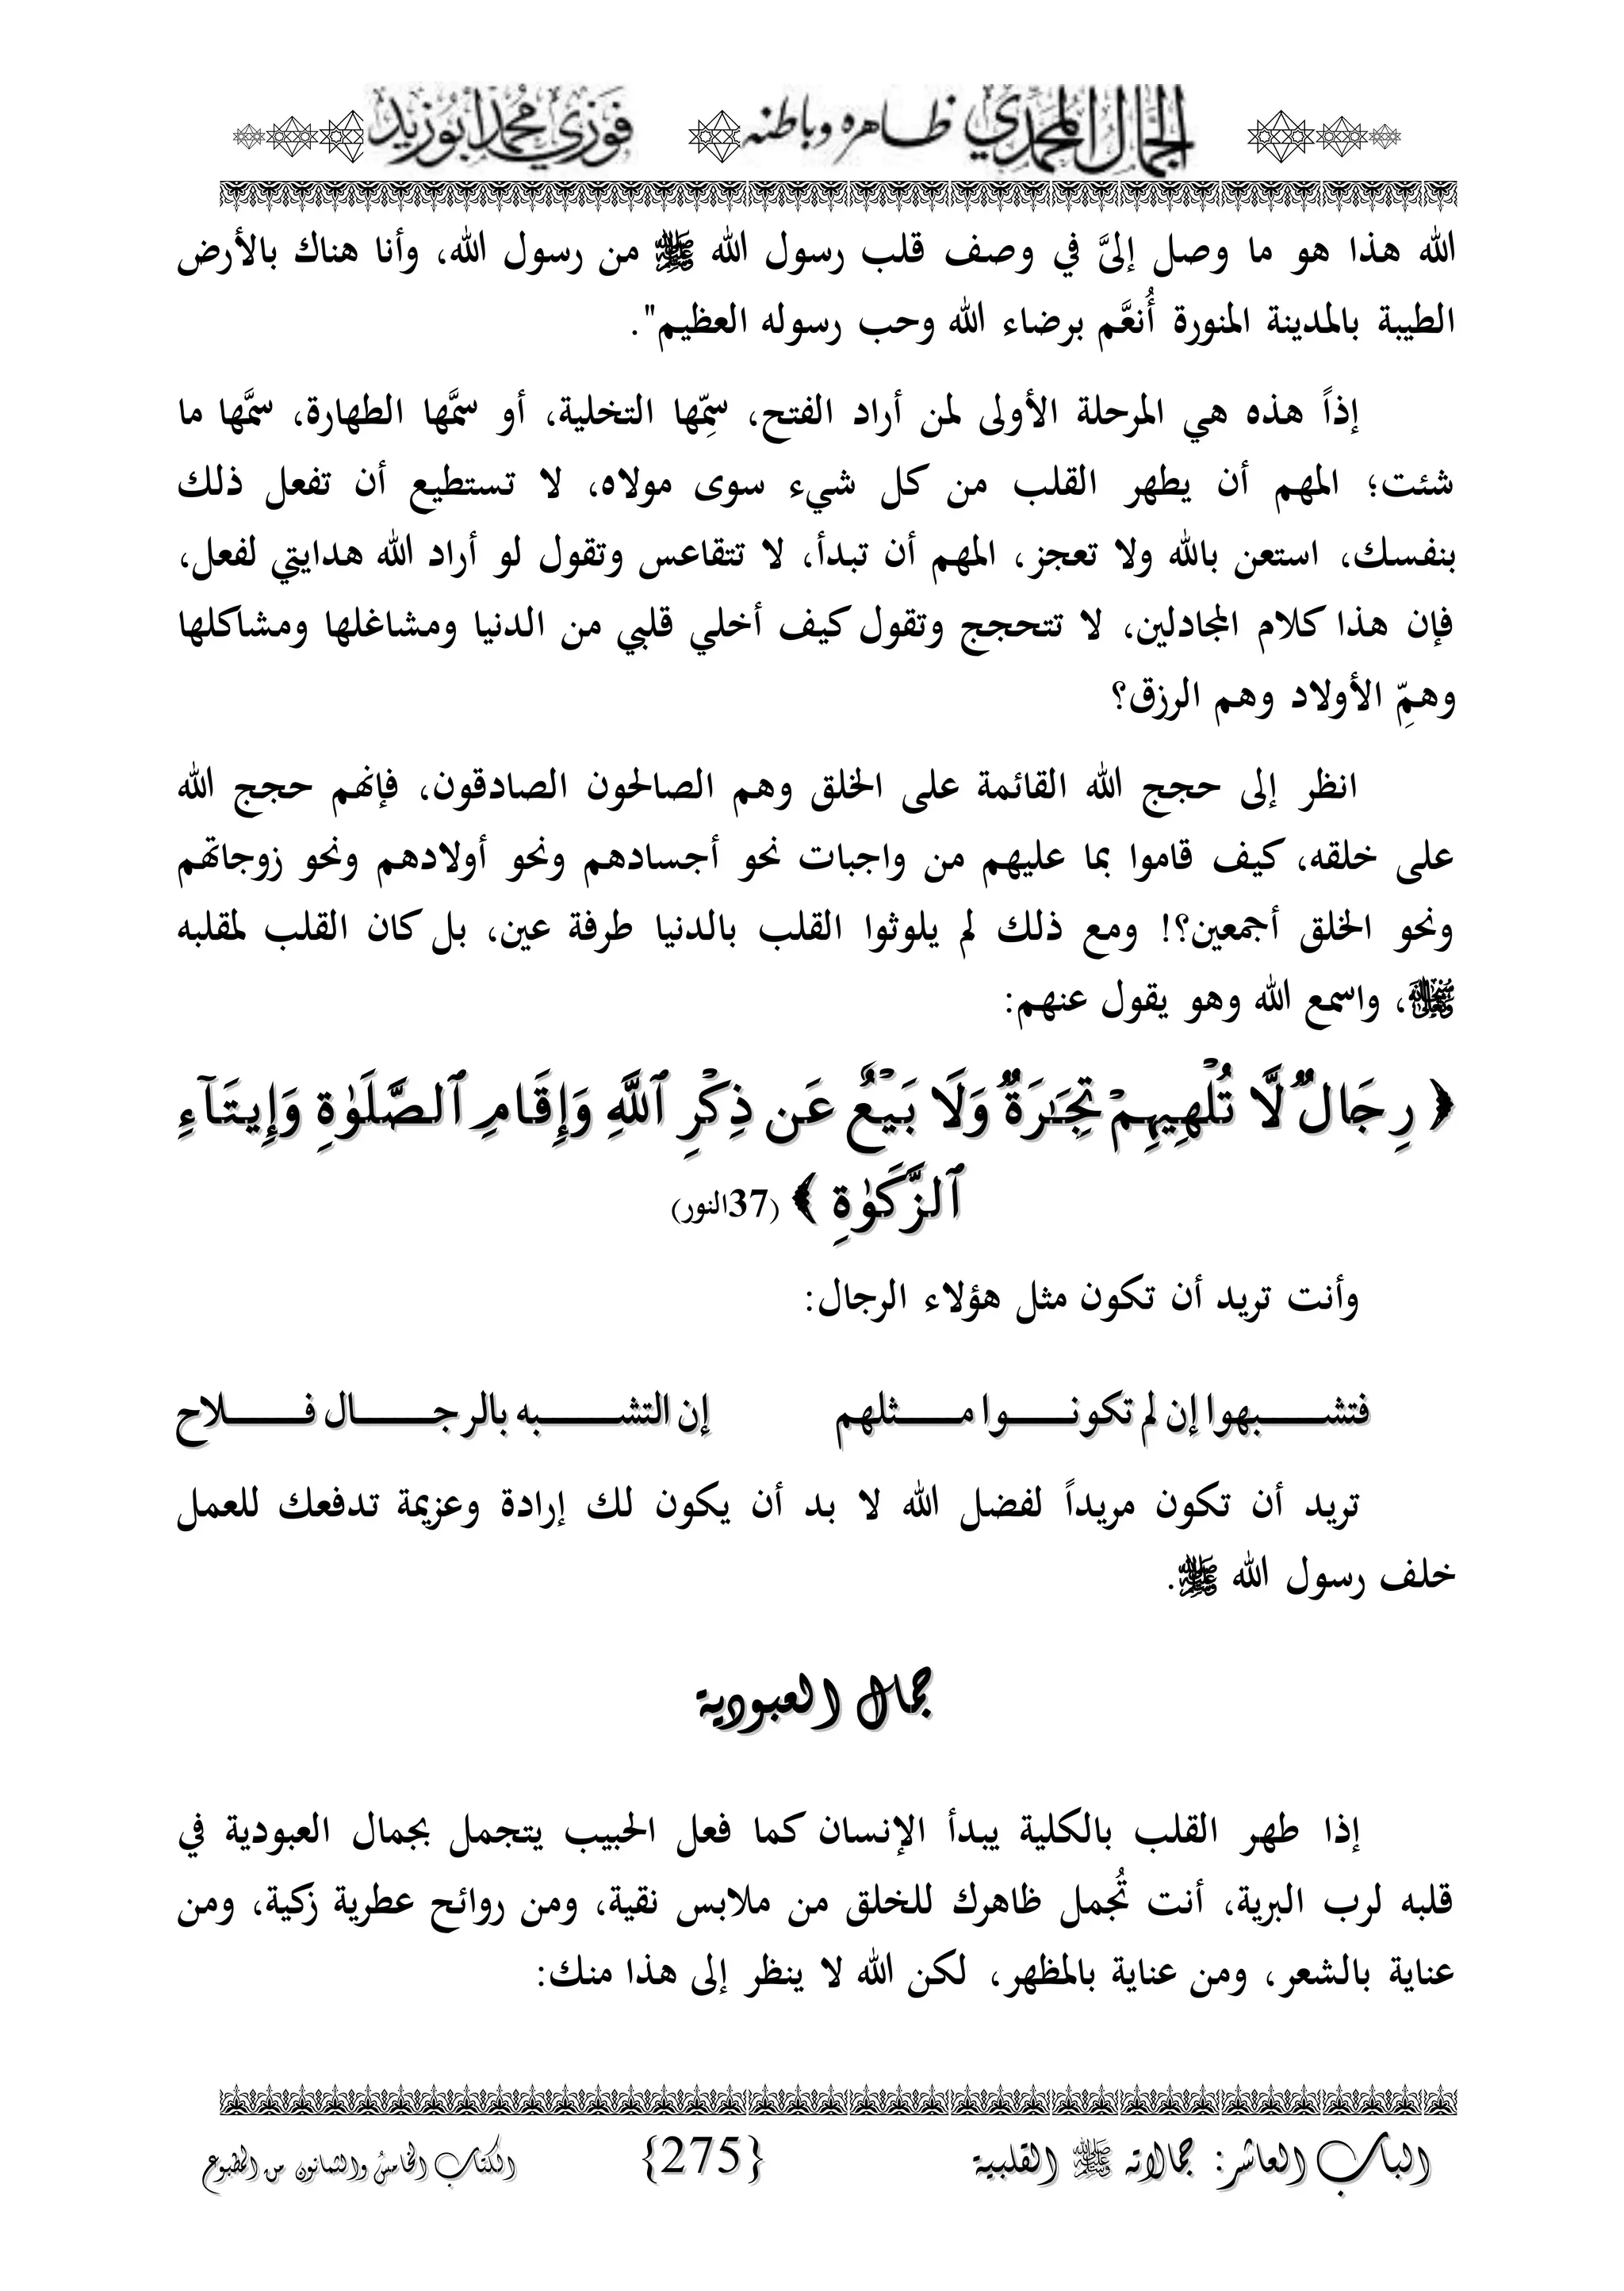 الجمال المحمدي ظاهره وباطنه فوزي محمد أبوزيد
الله هذا هو ما وصل إلىَّ في وصف قلب رسول الله ﷺ من رسول الله، وأنا هناك بالأرض
الطيبة بالمدينة المنورة أُنعَّم برضاء الله وحب رسوله العظيم".
إذاً هذه هي المرحلة الأولى لمن أراد الفتح، سمِّها التخلية، أو سمَّها الطهارة، سمَّها ما
شئت؛ المهم أن يطهر القلب من كل شيء سوى مولاه، لا تستطيع أن تفعل ذلك
بنفسك، استعن بالله ولا تعجز، المهم أن تبدأ، لا تتقاعس وتقول لو أراد الله هدايتي لفعل،
فإن هذا كلام المجادلين، لا تتحجج وتقول كيف أخلي قلبي من الدنيا ومشاغلها ومشاكلها
وهمِّ الأولاد وهم الرزق؟
انظر إلى حجج الله القائمة على الخلق وهم الصالحون الصادقون، فإنهم حجج الله
على خلقه، كيف قاموا بما عليهم من واجبات نحو أجسادهم ونحو أولادهم ونحو زوجاتهم
ونحو الخلق أجمعين؟! ومع ذلك لم يلوثوا القلب بالدنيا طرفة عين، بل كان القلب لمقلبه
، واسمع الله وهو يقول عنهم:
﴿ رِجَالٌ لَّا تُلْهِيهِمْ تِجَٰرَةٌ وَلَا بَيْعٌ عَن ذِكْرِ ٱللَّهِ وَإِقَامِ ٱلصَّلَوٰةِ وَإِيتَآءِ
ٱلزَّكَوٰةِ ﴾ (37النور)
وأنت تريد أن تكون مثل هؤلاء الرجال:
فتشـــبهوا إن لم تكونـــوا مـــثلهم إن التشـــبه بالرجـــال فـــلاح
تريد أن تكون مريداً لفضل الله لا بد أن يكون لك إرادة وعزيمة تدفعك للعمل
خلف رسول الله ﷺ.
جمال العبودية
إذا طهر القلب بالكلية يبدأ الإنسان كما فعل الحبيب يتجمل بجمال العبودية في
قلبه لرب البرية، أنت تُجمل ظاهرك للخلق من ملابس نقية، ومن روائح عطرية زكية، ومن
عناية بالشعر، ومن عناية بالمظهر، لكن الله لا ينظر إلى هذا منك:
الباب العاشر: جمالاته ﷺ القلبية {275} الكتاب الخامس والثمانون من المطبوع